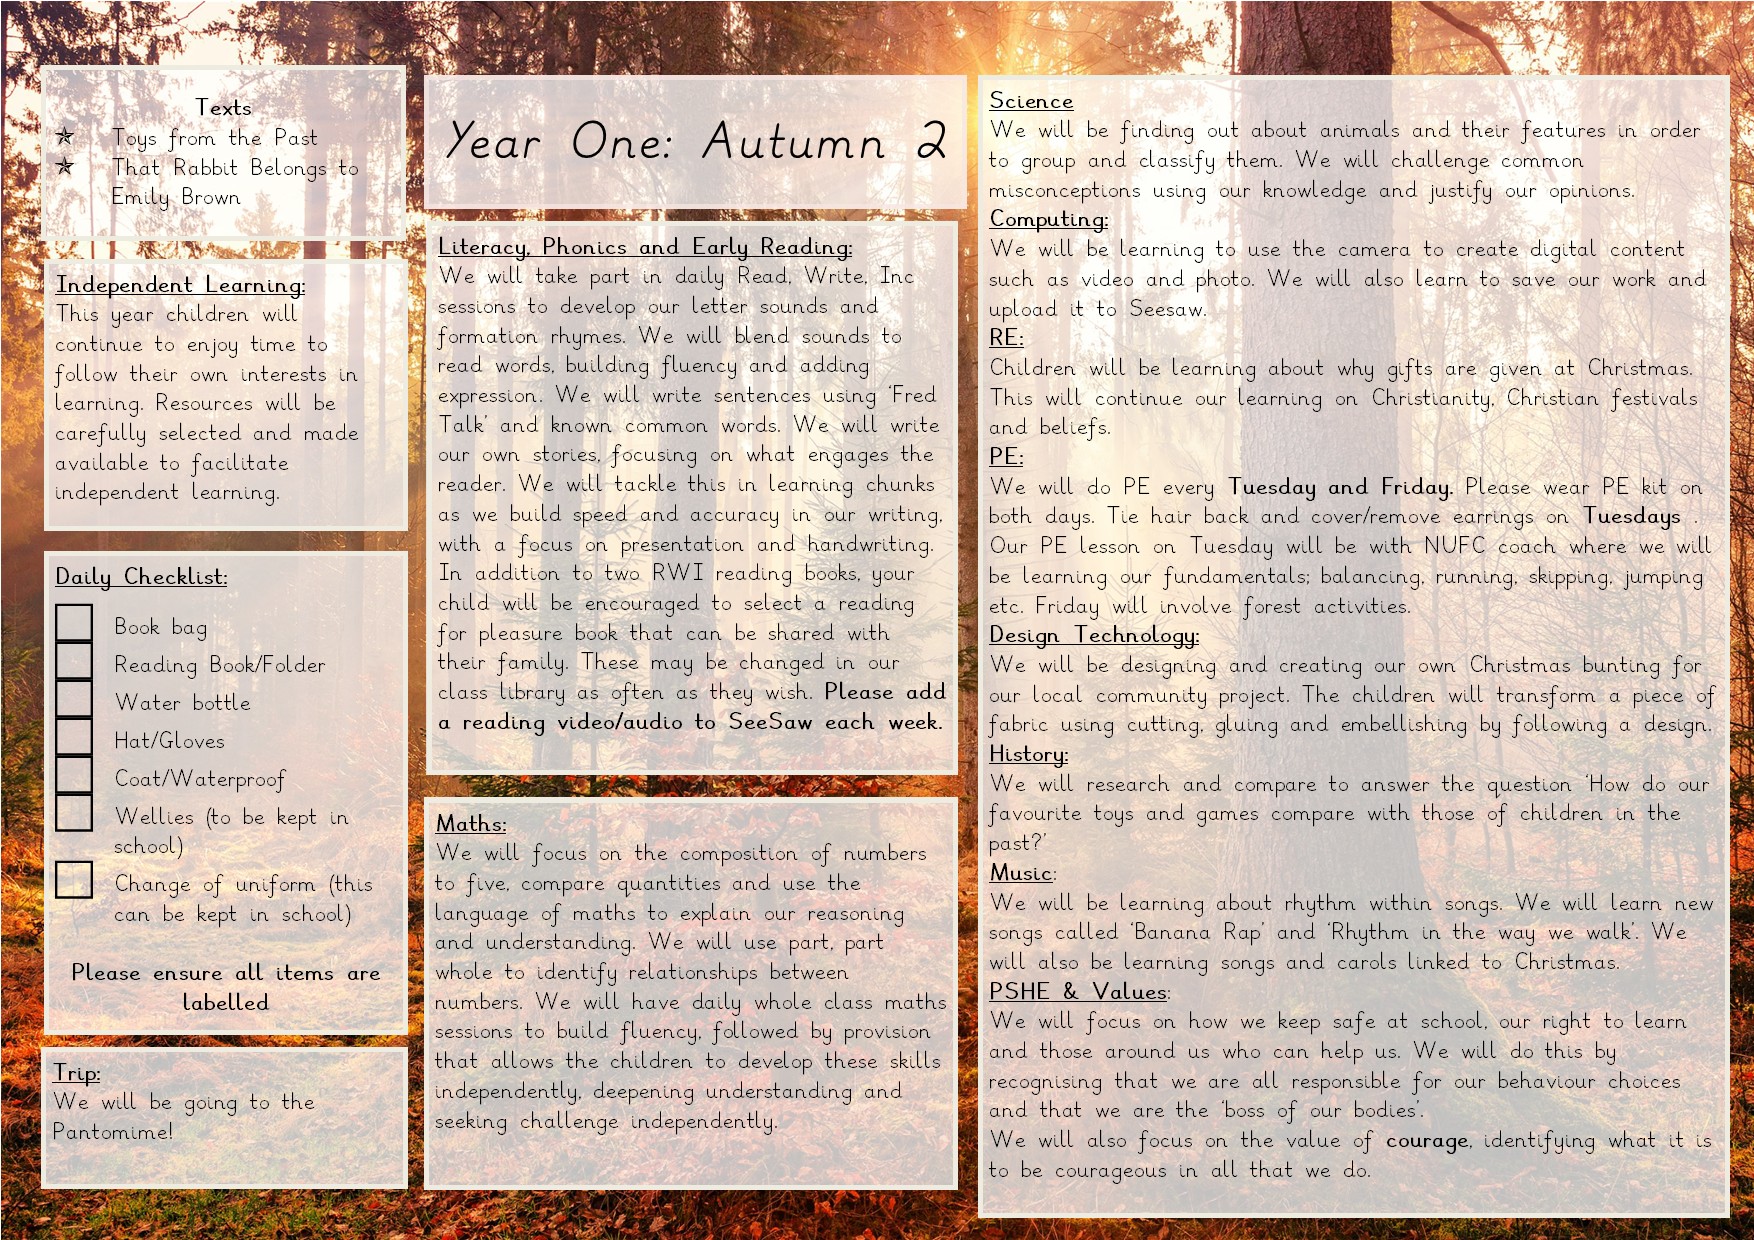 Texts
Toys from the Past
That Rabbit Belongs to
Emily Brown
Independent Learning:
This year children will
continue to enjoy time to
follow their own interests in
learning. Resources will be
carefully selected and made
available to facilitate
independent learning.
Daily Checklist:
Book bag
Reading Book/Folder
Water bottle
Hat/Gloves
Coat/Waterproof
Wellies (to be kept in
school)
Change of uniform (this
can be kept in school)
Please ensure all items are
labelled
Trip:
We will be going to the
Pantomime!
Year One: Autumn 2
Literacy, Phonics and Early Reading:
We will take part in daily Read, Write, Inc
sessions to develop our letter sounds and
formation rhymes. We will blend sounds to
read words, building fluency and adding
expression. We will write sentences using ‘Fred
Talk’ and known common words. We will write
our own stories, focusing on what engages the
reader. We will tackle this in learning chunks
as we build speed and accuracy in our writing,
with a focus on presentation and handwriting.
In addition to two RWI reading books, your
child will be encouraged to select a reading
for pleasure book that can be shared with
their family. These may be changed in our
class library as often as they wish. Please add
a reading video/audio to SeeSaw each week.
Maths:
We will focus on the composition of numbers
to five, compare quantities and use the
language of maths to explain our reasoning
and understanding. We will use part, part
whole to identify relationships between
numbers. We will have daily whole class maths
sessions to build fluency, followed by provision
that allows the children to develop these skills
independently, deepening understanding and
seeking challenge independently.
Science
We will be finding out about animals and their features in order
to group and classify them. We will challenge common
misconceptions using our knowledge and justify our opinions.
Computing:
We will be learning to use the camera to create digital content
such as video and photo. We will also learn to save our work and
upload it to Seesaw.
RE:
Children will be learning about why gifts are given at Christmas.
This will continue our learning on Christianity, Christian festivals
and beliefs.
PE:
We will do PE every Tuesday and Friday. Please wear PE kit on
both days. Tie hair back and cover/remove earrings on Tuesdays .
Our PE lesson on Tuesday will be with NUFC coach where we will
be learning our fundamentals; balancing, running, skipping, jumping
etc. Friday will involve forest activities.
Design Technology:
We will be designing and creating our own Christmas bunting for
our local community project. The children will transform a piece of
fabric using cutting, gluing and embellishing by following a design.
History:
We will research and compare to answer the question ‘How do our
favourite toys and games compare with those of children in the
past?’
Music:
We will be learning about rhythm within songs. We will learn new
songs called ‘Banana Rap’ and ‘Rhythm in the way we walk’. We
will also be learning songs and carols linked to Christmas.
PSHE & Values:
We will focus on how we keep safe at school, our right to learn
and those around us who can help us. We will do this by
recognising that we are all responsible for our behaviour choices
and that we are the ‘boss of our bodies’.
We will also focus on the value of courage, identifying what it is
to be courageous in all that we do.